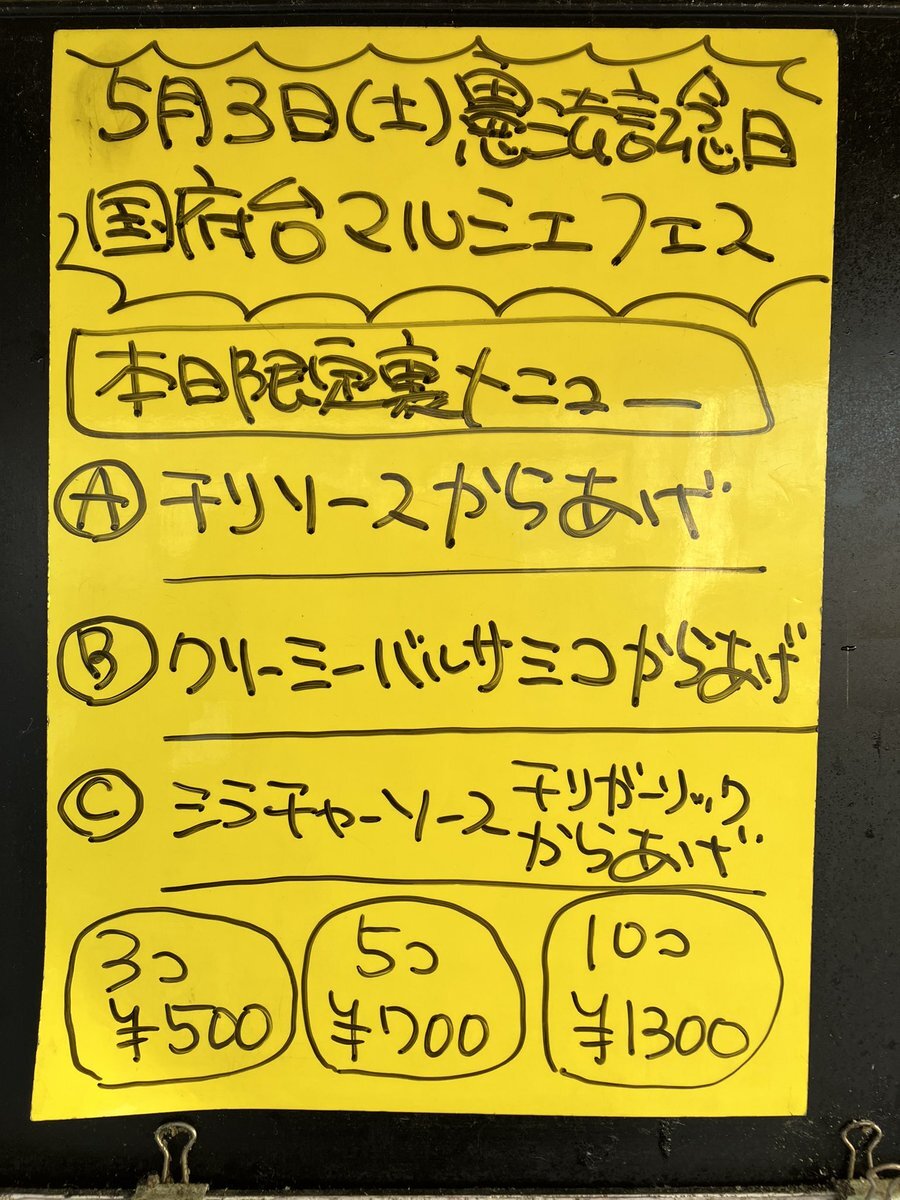 5月3日(土)憲法記念日
国府台マルシェフェス
本日限定裏メニュー
Ⓐ チリソースからあげ
Ⓑ クリーミーバルサミコからあげ
Ⓒ シラチャーソースチリガーリック
からあげ
3コ
¥500
5コ
¥700
10コ
¥1300